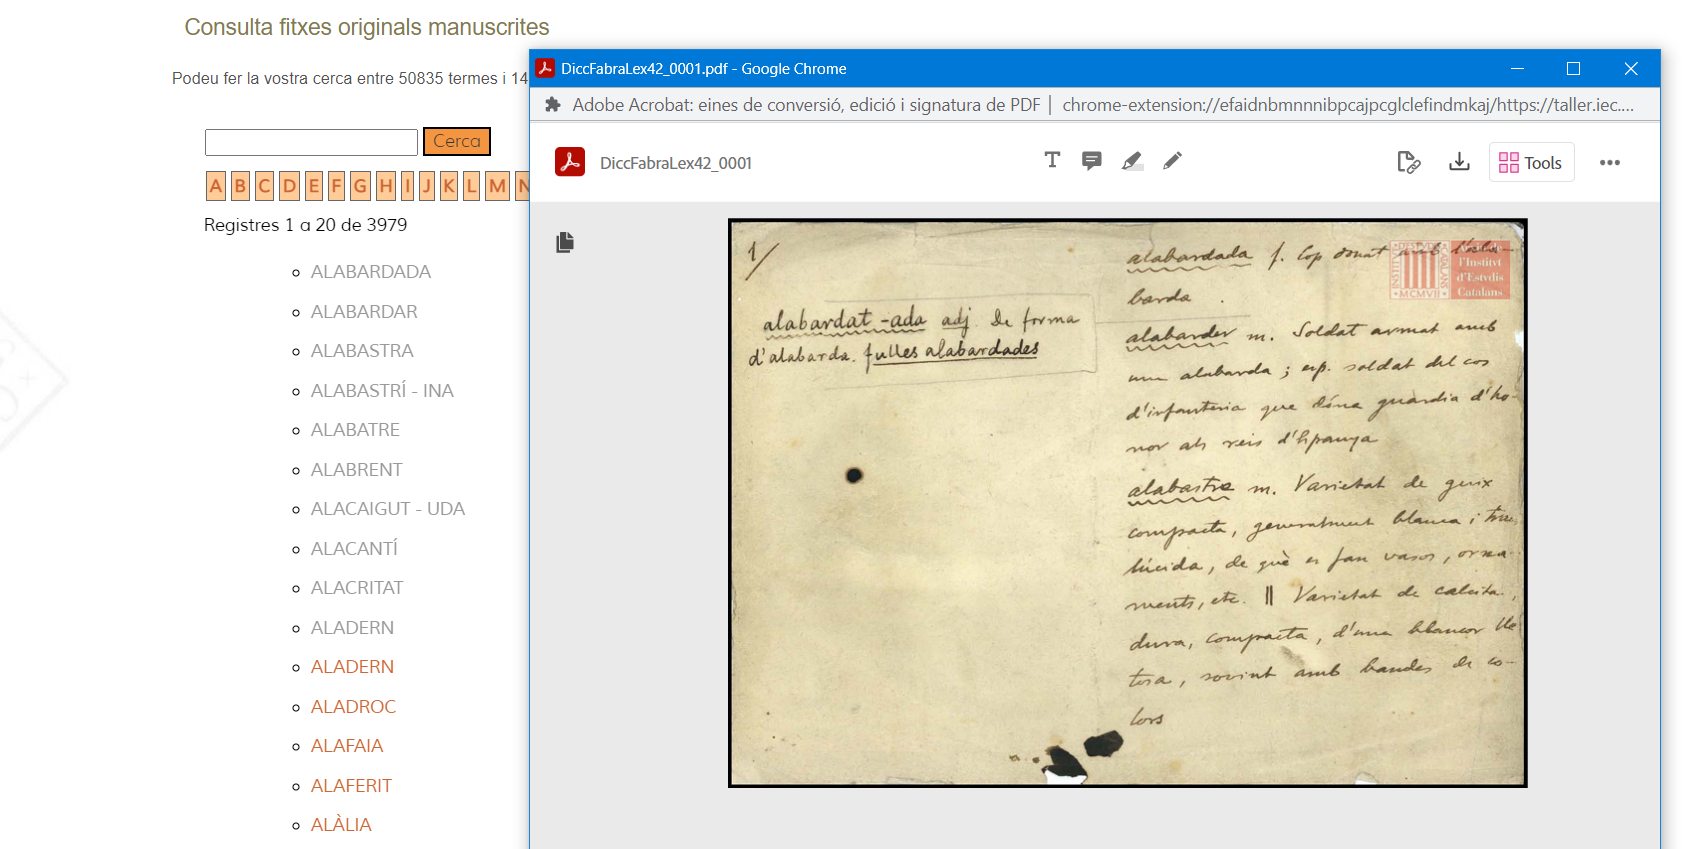 Consulta fitxes originals manuscrites
Podeu fer la vostra cerca entre 50835 termes i 14
Cerca
A B C D E F G H I J K L M N
Registres 1 a 20 de 3979
ALABARDADA
ALABARDAR
ALABASTRA
ALABASTRÍ - INA
ALABATRE
ALABRENT
ALACAIGUT - UDA
ALACANTÍ
ALACRITAT
ALADERN
ALADERN
ALADROC
ALAFAIA
ALAFERIT
ALÀLIA
DiccFabraLex42_0001.pdf - Google Chrome
Adobe Acrobat: eines de conversió, edició i signatura de PDF | chrome-extension://efaidnbmnnnibpcajpcglclefindmkaj/https://taller.iec....
DiccFabraLex42_0001
T
Tools
1/
alabardat -ada adj. De forma
d'alabarda. fulles alabardades
alabardada f. Cop donat amb l'ala-
barda
alabarder m. Soldat armat amb
una alabarda; esp. soldat del cos
d'infanteria que dóna guardia d'ho-
nor als reis d'Espanya
alabastre m. Varietat de guix
compacta, generalment blanca i trans-
lúcida, de què es fan vasos, orna-
ments, etc. || Varietat de calcita,
dura, compacta, d'una blancor lle-
tosa, sovint amb bandes de co-
lors
INSTITVT D'ESTVDIS CATALANS
MCMVII
l'Institvt
d'Estvdis
Catalans